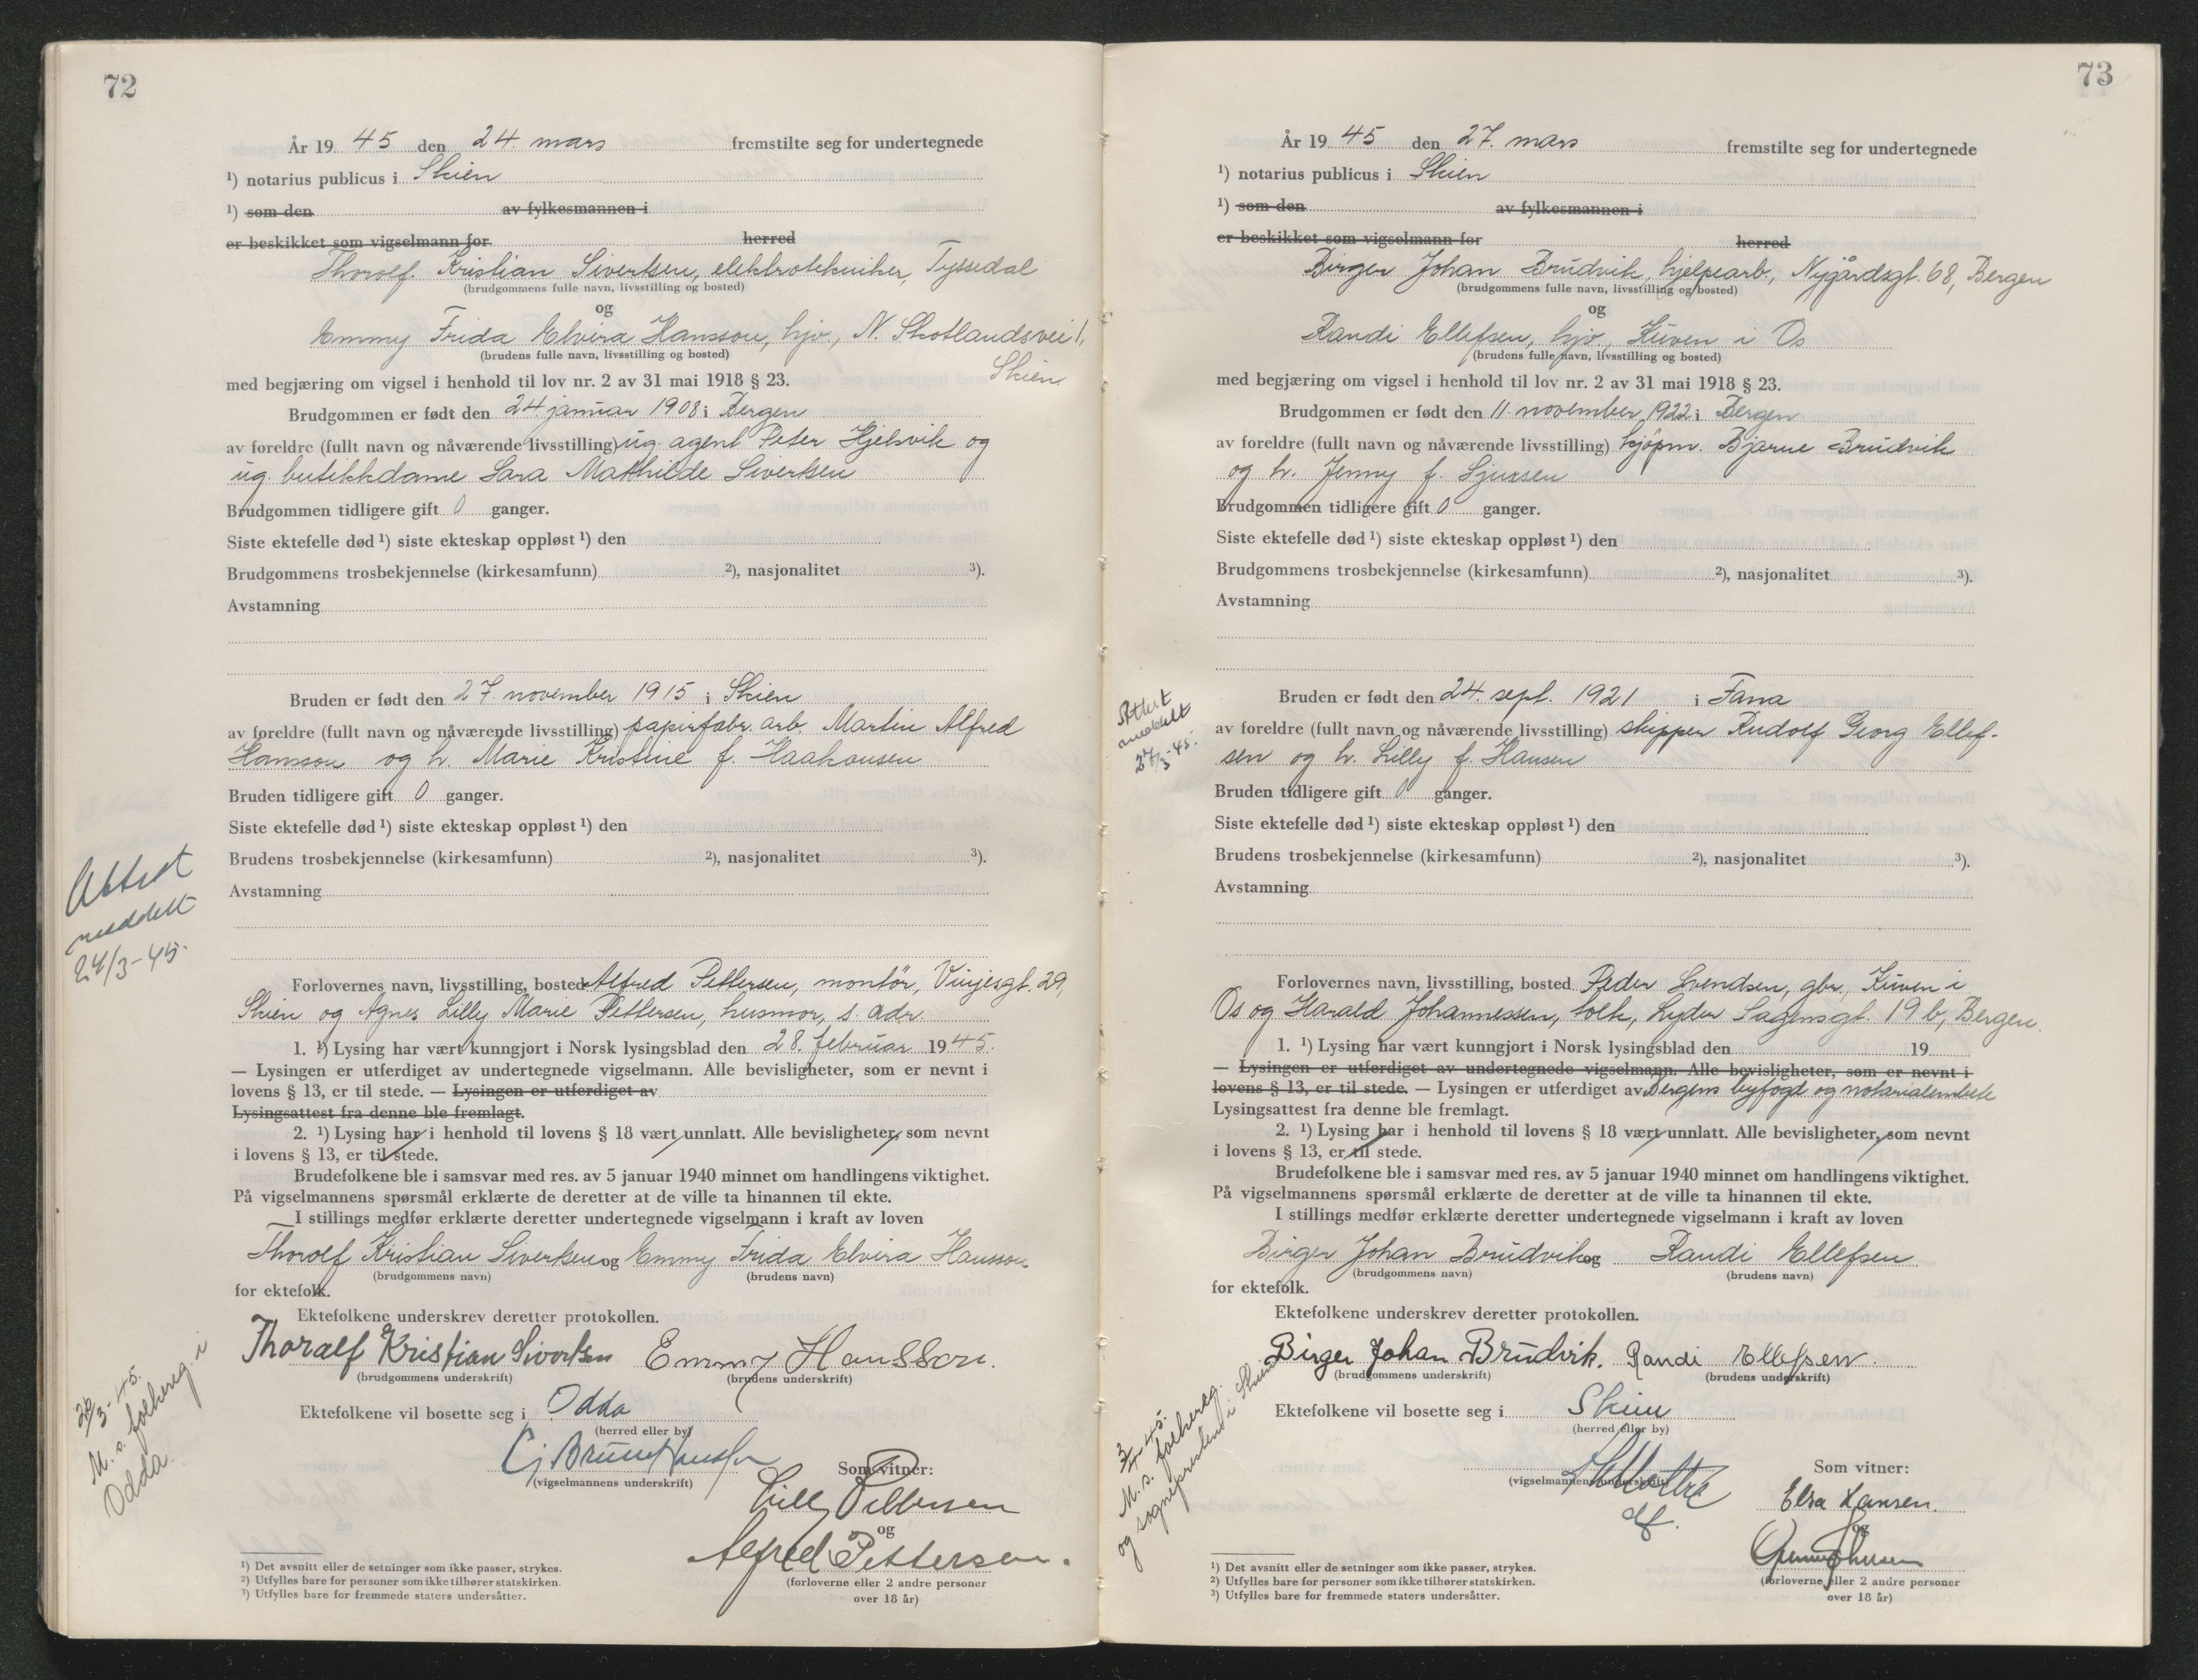 72
År 19 45 den 24. mars fremstilte seg for undertegnede
¹) notarius publicus i Skien
¹) som den av fylkesmannen i
er beskikket som vigselmann for herred
Thorolf Kristian Sivertsen, elektrotekniker, Tyssedal
(brudgommens fulle navn, livsstilling og bosted)
og
Emmy Frida Elvira Hansson, hjv., N. Skotlandsvei 1,
(brudens fulle navn, livsstilling og bosted)
Skien
med begjæring om vigsel i henhold til lov nr. 2 av 31 mai 1918 § 23.
Brudgommen er født den 24. januar 1908 i Bergen
av foreldre (fullt navn og nåværende livsstilling) ug. agent Peter Hjelsvik og
ug. butikkdame Sara Mathilde Sivertsen
Brudgommen tidligere gift 0 ganger.
Siste ektefelle død ¹) siste ekteskap oppløst ¹) den
Brudgommens trosbekjennelse (kirkesamfunn) ²), nasjonalitet ³).
Avstamning
Bruden er født den 27. november 1915 i Skien
av foreldre (fullt navn og nåværende livsstilling) papirfabr. arb. Martin Alfred
Hansson og h. Marie Kristine f. Haakonsen
Bruden tidligere gift 0 ganger.
Siste ektefelle død ¹) siste ekteskap oppløst ¹) den
Brudens trosbekjennelse (kirkesamfunn) ²), nasjonalitet ³).
Avstamning
Attest
meddelt
24/3-45.
Forlovernes navn, livsstilling, bosted Alfred Pettersen, montör, Vinjesgt. 29,
Skien og Agnes Lilly Marie Pettersen, husmor, s. adr.
1. ¹) Lysing har vært kunngjort i Norsk lysingsblad den 28. februar 1945.
— Lysingen er utferdiget av undertegnede vigselmann. Alle bevisligheter, som er nevnt i
lovens § 13, er til stede. — Lysingen er utferdiget av
Lysingsattest fra denne ble fremlagt.
2. ¹) Lysing har i henhold til lovens § 18 vært unnlatt. Alle bevisligheter, som nevnt
i lovens § 13, er til stede.
Brudefolkene ble i samsvar med res. av 5 januar 1940 minnet om handlingens viktighet.
På vigselmannens spørsmål erklærte de deretter at de ville ta hinannen til ekte.
I stillings medfør erklærte deretter undertegnede vigselmann i kraft av loven
Thorolf Kristian Sivertsen og Emmy Frida Elvira Hansson
(brudgommens navn) (brudens navn)
for ektefolk.
Ektefolkene underskrev deretter protokollen.
Thoralf Kristian Sivertsen Emmy Hansson.
(brudgommens underskrift) (brudens underskrift)
Ektefolkene vil bosette seg i Odda
(herred eller by)
(vigselmannens underskrift) Som vitner:
Lilly Pettersen
og
Alfred Pettersen.
(forloverne eller 2 andre personer
over 18 år)
26/3-45.
M. s. folkereg. i
Odda.
¹) Det avsnitt eller de setninger som ikke passer, strykes.
²) Utfylles bare for personer som ikke tilhører statskirken.
³) Utfylles bare for fremmede staters undersåtter.
73
År 19 45 den 27. mars fremstilte seg for undertegnede
¹) notarius publicus i Skien
¹) som den av fylkesmannen i
er beskikket som vigselmann for herred
Birger Johan Brudvik, hjelpearb., Nygårdsgt. 68, Bergen
(brudgommens fulle navn, livsstilling og bosted)
og
Randi Ellefsen, hjv., Kuven i Os
(brudens fulle navn, livsstilling og bosted)
med begjæring om vigsel i henhold til lov nr. 2 av 31 mai 1918 § 23.
Brudgommen er født den 11. november 1922 i Bergen
av foreldre (fullt navn og nåværende livsstilling) kjöpm. Bjarne Brudvik
og h. Jenny f. Sjursen
Brudgommen tidligere gift 0 ganger.
Siste ektefelle død ¹) siste ekteskap oppløst ¹) den
Brudgommens trosbekjennelse (kirkesamfunn) ²), nasjonalitet ³).
Avstamning
Attest
meddelt
27/3-45.
Bruden er født den 24. sept. 1921 i Fana
av foreldre (fullt navn og nåværende livsstilling) skipper Rudolf Georg Ellef-
sen og h. Lilly f. Hansen
Bruden tidligere gift 0 ganger.
Siste ektefelle død ¹) siste ekteskap oppløst ¹) den
Brudens trosbekjennelse (kirkesamfunn) ²), nasjonalitet ³).
Avstamning
Forlovernes navn, livsstilling, bosted Peder Svendsen, gbr., Kuven i
Os og Harald Johannessen, tolk, Lyder Sagensgt. 19 b, Bergen.
1. ¹) Lysing har vært kunngjort i Norsk lysingsblad den 19
— Lysingen er utferdiget av undertegnede vigselmann. Alle bevisligheter, som er nevnt i
lovens § 13, er til stede. — Lysingen er utferdiget av Bergens byfogd og notarialembete
Lysingsattest fra denne ble fremlagt.
2. ¹) Lysing har i henhold til lovens § 18 vært unnlatt. Alle bevisligheter, som nevnt
i lovens § 13, er til stede.
Brudefolkene ble i samsvar med res. av 5 januar 1940 minnet om handlingens viktighet.
På vigselmannens spørsmål erklærte de deretter at de ville ta hinannen til ekte.
I stillings medfør erklærte deretter undertegnede vigselmann i kraft av loven
Birger Johan Brudvik og Randi Ellefsen
(brudgommens navn) (brudens navn)
for ektefolk.
Ektefolkene underskrev deretter protokollen.
Birger Johan Brudvik. Randi Ellefsen.
(brudgommens underskrift) (brudens underskrift)
Ektefolkene vil bosette seg i Skien
(herred eller by)
(vigselmannens underskrift) Som vitner:
Elsa Hansen.
og
(forloverne eller 2 andre personer
over 18 år)
M. s. folkereg.
og sognepresten i Skien
¹) Det avsnitt eller de setninger som ikke passer, strykes.
²) Utfylles bare for personer som ikke tilhører statskirken.
³) Utfylles bare for fremmede staters undersåtter.